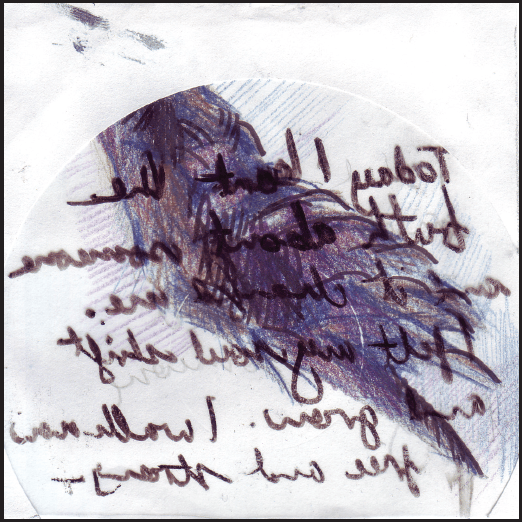 Today I learnt the
truth about someone
and it changed me.
I felt my soul shift
and grow. I walk now
free and strong -